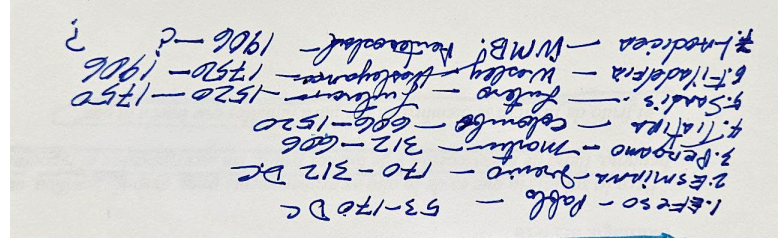 1. EFESO - Pablo - 53-170 DC
2. ESMIRNA - Irenio - 170-312 D.C
3. PERGAMO - Martin - 312-606
4. TIATIRA - Colombo - 606-1520
5. Sardis - Lutero - Luterano - 1520-1750
6. Filadelfia - Wesley - Wesleyano - 1750-1906
7. Laodicea - WMB! Pentecostal - 1906-¿ ?